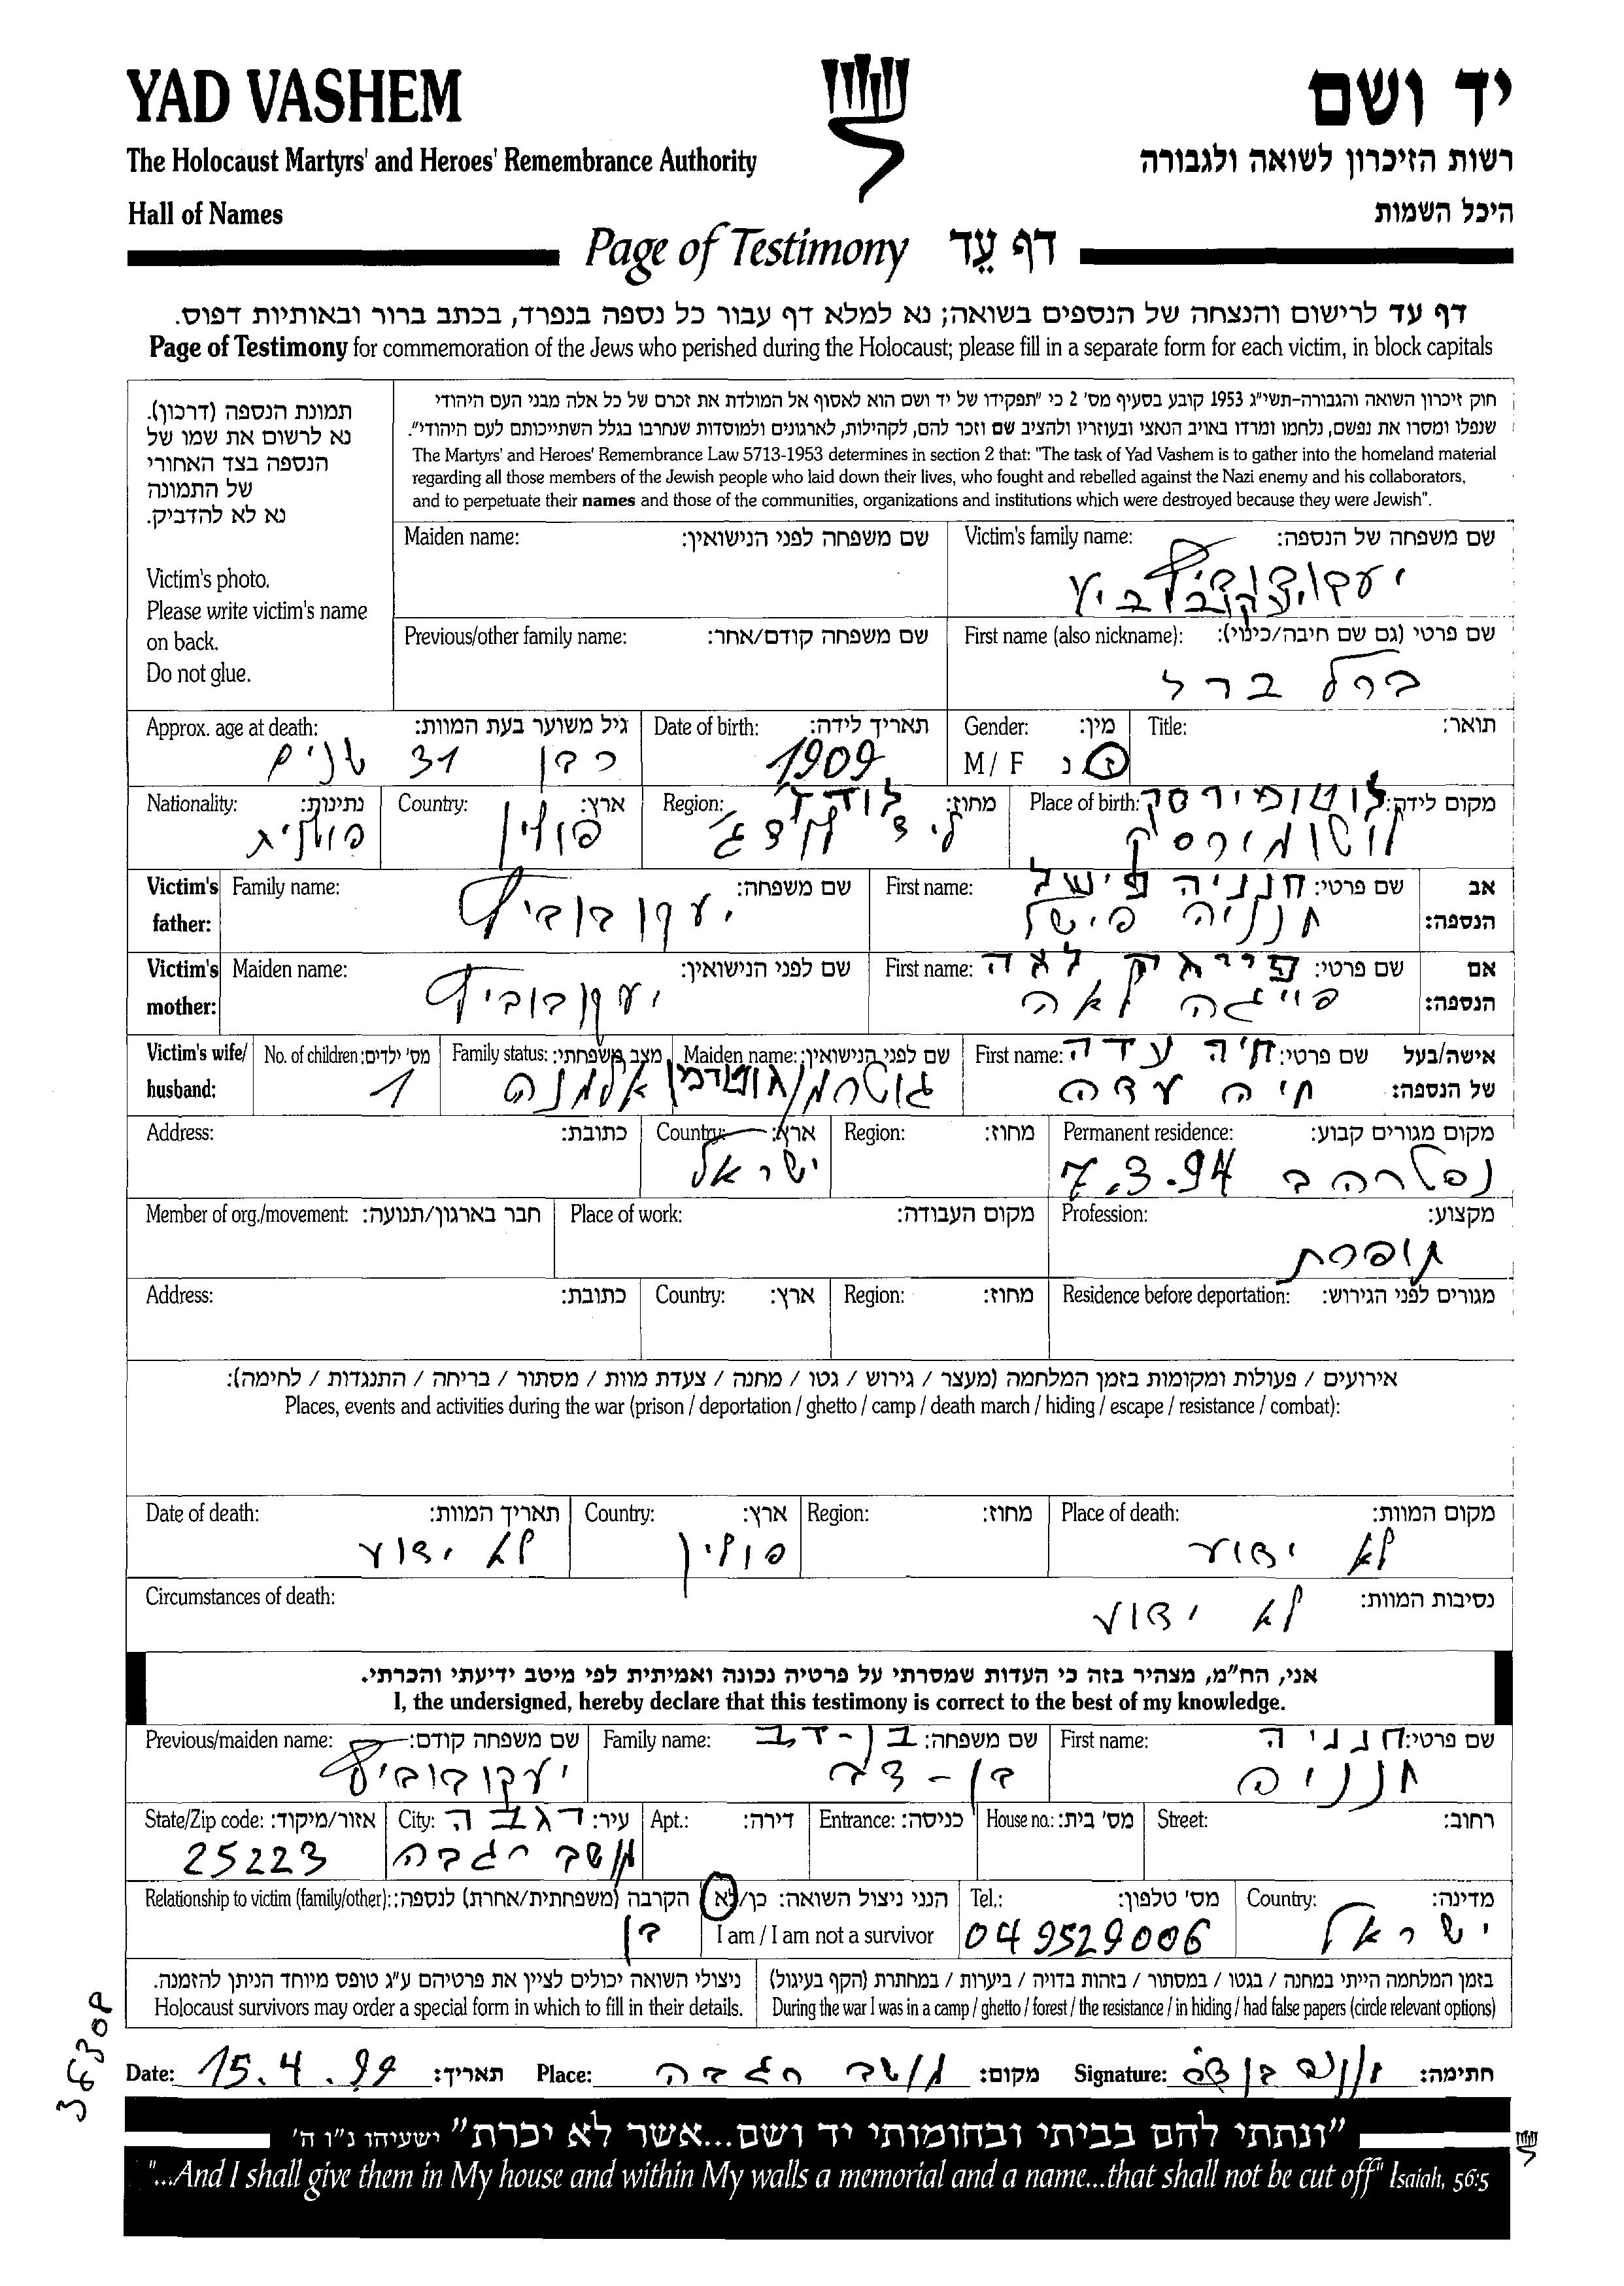 YAD VASHEM
יד ושם
The Holocaust Martyrs' and Heroes' Remembrance Authority
רשות הזיכרון לשואה ולגבורה
Hall of Names
היכל השמות
Page of Testimony דף עֵד
דף עד לרישום והנצחה של הנספים בשואה; נא למלא דף עבור כל נספה בנפרד, בכתב ברור ובאותיות דפוס.
Page of Testimony for commemoration of the Jews who perished during the Holocaust; please fill in a separate form for each victim, in block capitals
תמונת הנספה (דרכון).
נא לרשום את שמו של
הנספה בצד האחורי
של התמונה
נא לא להדביק.
Victim's photo.
Please write victim's name
on back.
Do not glue.
חוק זיכרון השואה והגבורה-תשי"ג 1953 קובע בסעיף מס' 2 כי "תפקידו של יד ושם הוא לאסוף אל המולדת את זכרם של כל אלה מבני העם היהודי
שנפלו ומסרו את נפשם, נלחמו ומרדו באויב הנאצי ובעוזריו ולהציב שם וזכר להם, לקהילות, לארגונים ולמוסדות שנחרבו בגלל השתייכותם לעם היהודי".
The Martyrs' and Heroes' Remembrance Law 5713-1953 determines in section 2 that: "The task of Yad Vashem is to gather into the homeland material
regarding all those members of the Jewish people who laid down their lives, who fought and rebelled against the Nazi enemy and his collaborators,
and to perpetuate their names and those of the communities, organizations and institutions which were destroyed because they were Jewish".
Victim's family name: שם משפחה של הנספה:
יעקובוביץ
Maiden name: שם משפחה לפני הנישואין:
First name (also nickname): שם פרטי (גם שם חיבה/כינוי):
ברל ברל
Previous/other family name: שם משפחה קודם/אחר:
Title: תואר:
Gender: מין:
M / F ז נ
Date of birth: תאריך לידה:
1909
Approx. age at death: גיל משוער בעת המוות:
כבן 31 שנים
Place of birth: מקום לידה: לוטומירסק
לוטומירסק
Region: מחוז: לודז'
Country: ארץ:
פולין
Nationality: נתינות:
פולנית
Victim's father: אב הנספה:
First name: שם פרטי: חנניה פישל
חנניה פישל
Family name: שם משפחה:
יעקובוביץ
Victim's mother: אם הנספה:
First name: שם פרטי: לאה
פייגה לאה
Maiden name: שם לפני הנישואין:
יעקובוביץ
Victim's wife/husband: אישה/בעל של הנספה:
First name: שם פרטי: חיה עדה
חיה עדה
Maiden name: שם לפני הנישואין:
Family status: מצב משפחתי:
אלמנה
No. of children: מס' ילדים:
1
Permanent residence: מקום מגורים קבוע:
נפטרה ב 7.3.94
Region: מחוז:
Country: ארץ:
ישראל
Address: כתובת:
Profession: מקצוע:
תופרת
Place of work: מקום העבודה:
Member of org./movement: חבר בארגון/תנועה:
Residence before deportation: מגורים לפני הגירוש:
Region: מחוז:
Country: ארץ:
Address: כתובת:
אירועים / פעולות ומקומות בזמן המלחמה (מעצר / גירוש / גטו / מחנה / צעדת מוות / מסתור / בריחה / התנגדות / לחימה):
Places, events and activities during the war (prison / deportation / ghetto / camp / death march / hiding / escape / resistance / combat):
Place of death: מקום המוות:
לא ידוע
Region: מחוז:
Country: ארץ:
פולין
Date of death: תאריך המוות:
לא ידוע
Circumstances of death: נסיבות המוות:
לא ידוע
אני, הח"מ, מצהיר בזה כי העדות שמסרתי על פרטיה נכונה ואמיתית לפי מיטב ידיעתי והכרתי.
I, the undersigned, hereby declare that this testimony is correct to the best of my knowledge.
First name: שם פרטי: חנניה
חנניה
Family name: שם משפחה: בן-דב
בן-דב
Previous/maiden name: שם משפחה קודם:
יעקובוביץ
Street: רחוב:
House no.: מס' בית:
Entrance: כניסה:
Apt.: דירה:
City: עיר: רגבה
מושב רגבה
State/Zip code: אזור/מיקוד:
25223
Country: מדינה:
ישראל
Tel.: מס' טלפון:
049529006
הנני ניצול השואה: כן/לא
I am / I am not a survivor
Relationship to victim (family/other): הקרבה (משפחתית/אחרת) לנספה:
בן
בזמן המלחמה הייתי במחנה / בגטו / במסתור / בזהות בדויה / ביערות / במחתרת (הקף בעיגול)
During the war I was in a camp / ghetto / forest / the resistance / in hiding / had false papers (circle relevant options)
ניצולי השואה יכולים לציין את פרטיהם ע"ג טופס מיוחד הניתן להזמנה.
Holocaust survivors may order a special form in which to fill in their details.
Date: 15.4.99 תאריך:
Place: מושב רגבה מקום:
Signature: חתימה:
"ונתתי להם בביתי ובחומותי יד ושם...אשר לא יכרת" ישעיהו נ"ו ה'
"...And I shall give them in My house and within My walls a memorial and a name...that shall not be cut off" Isaiah, 56:5